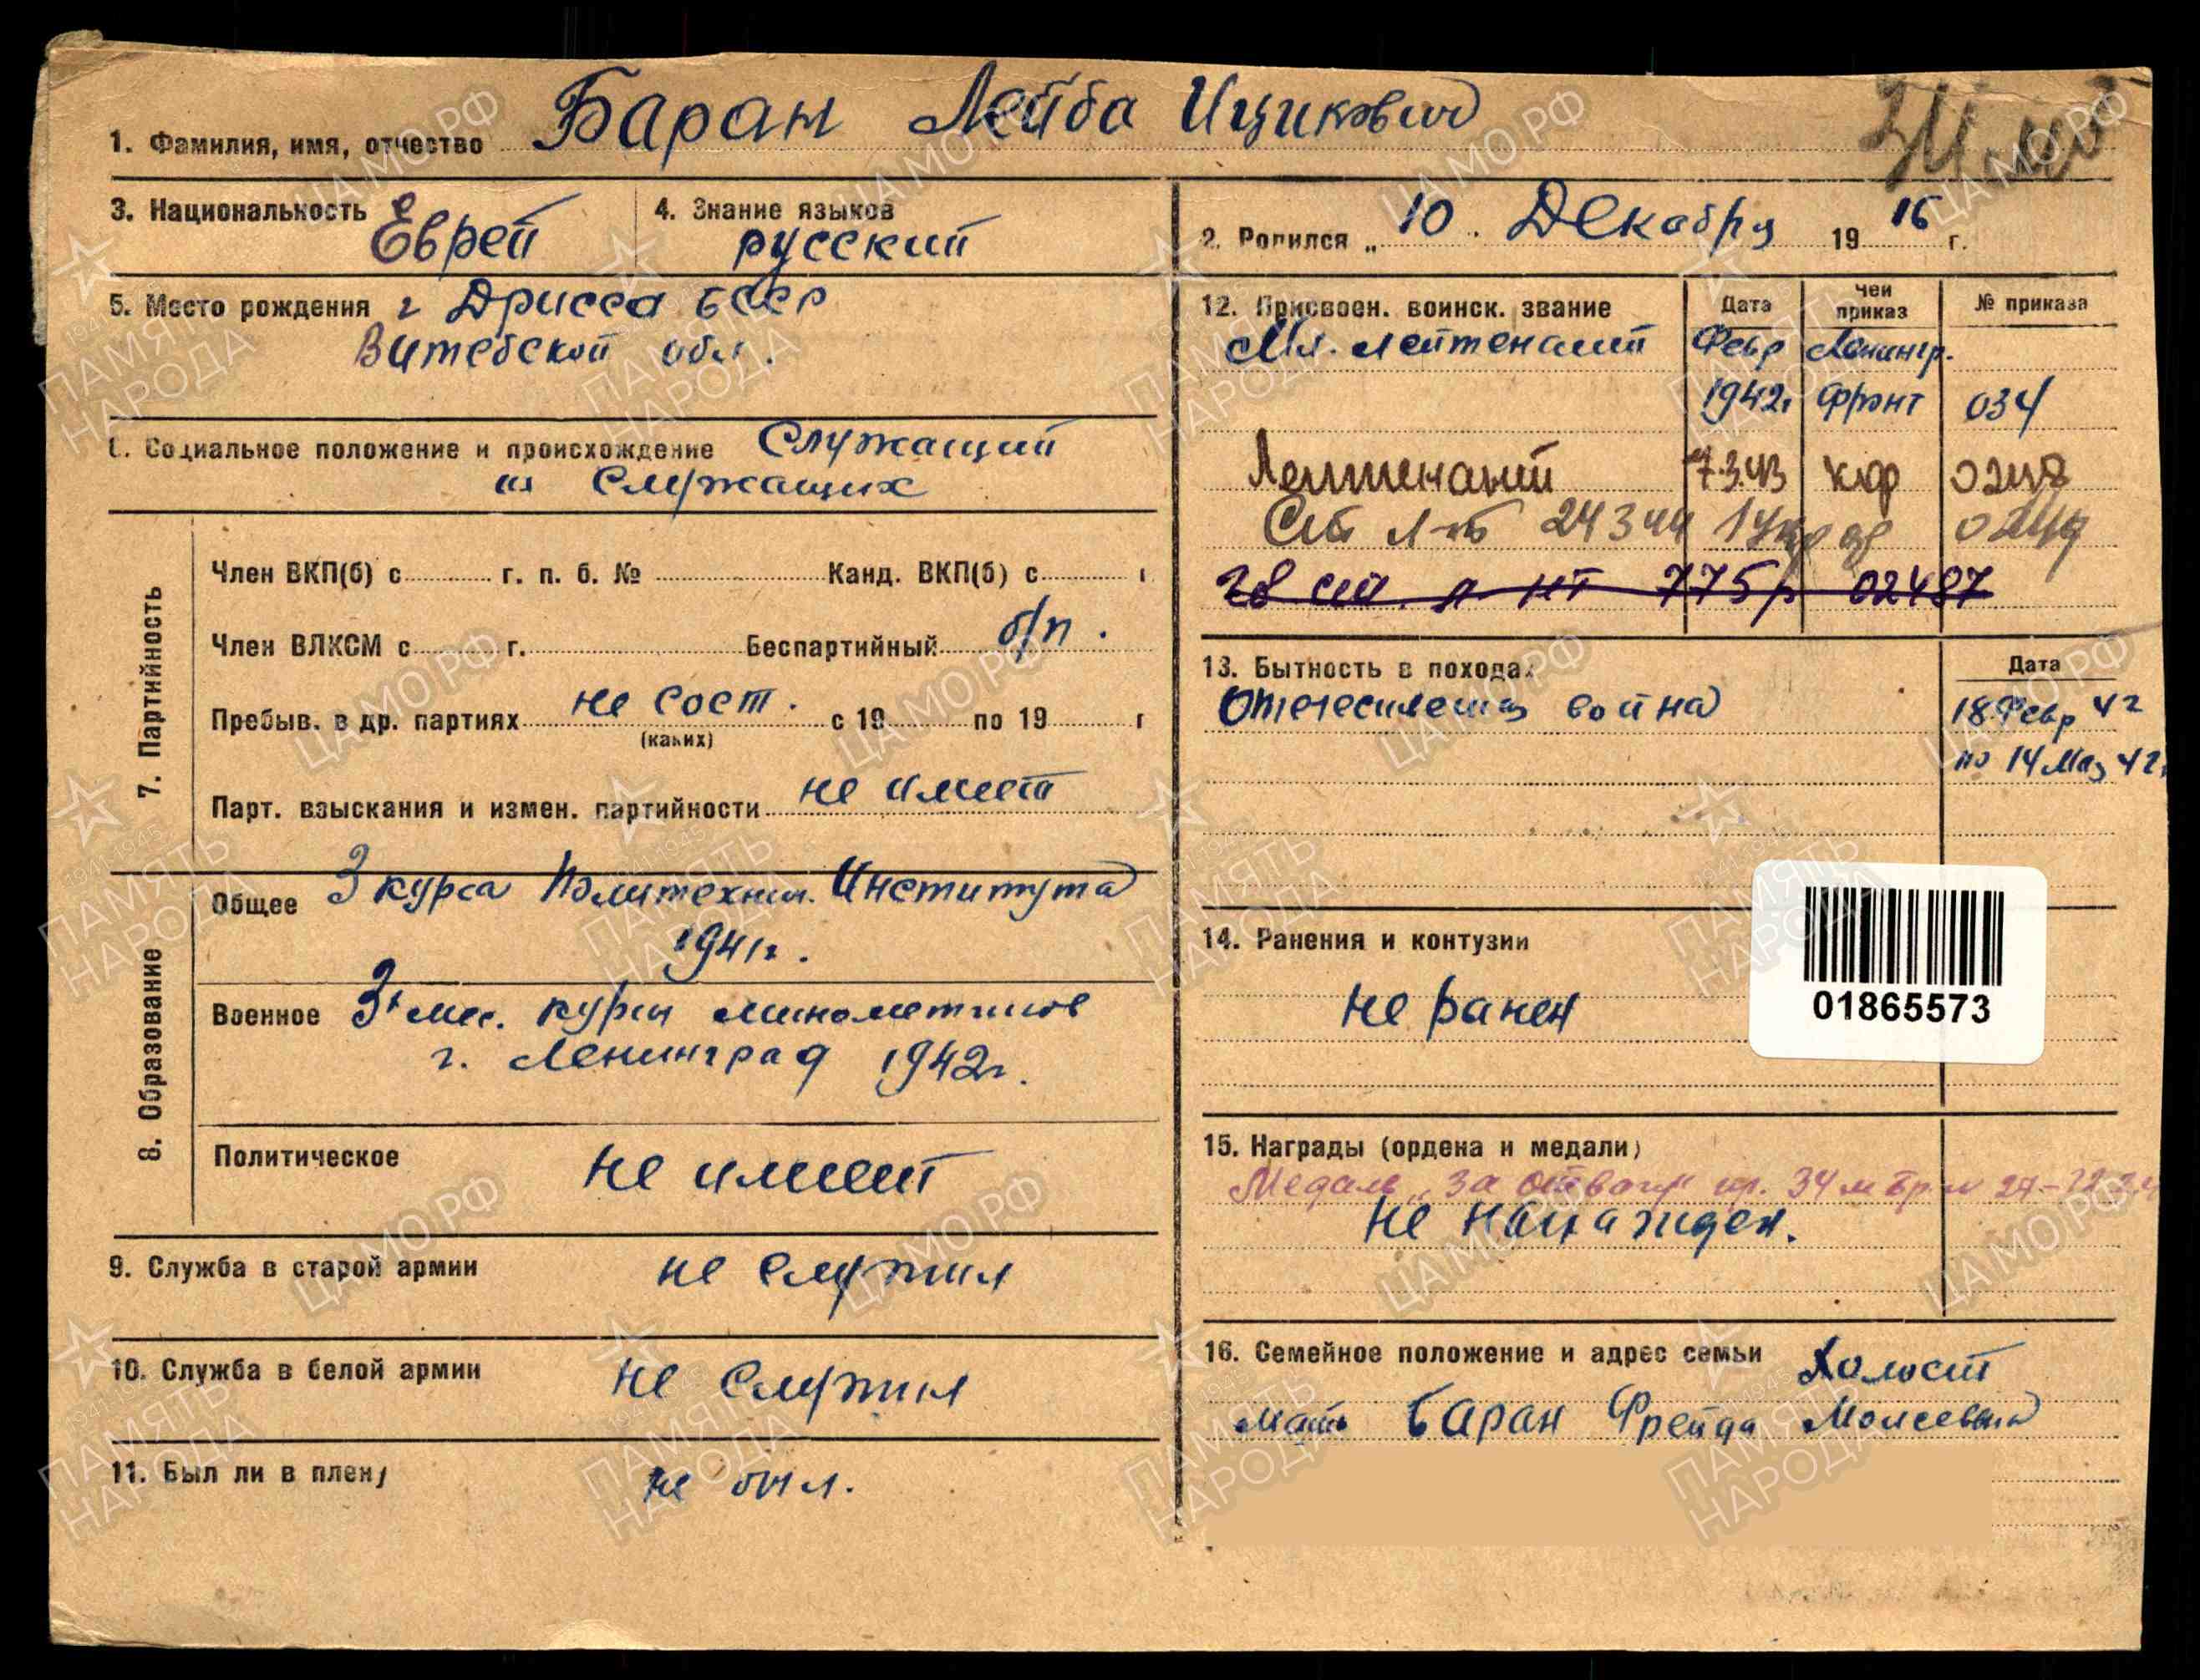 1. Фамилия, имя, отчество Баран Лейба Ицикович
3. Национальность Еврей
4. Знание языков русский
2. Родился „ 10 . Декабря 1916 г.
5. Место рождения г Дрисса БССР
Витебской обл.
6. Социальное положение и происхождение Служащий
из Служащих
7. Партийность
Член ВКП(б) с г. п. б. № Канд. ВКП(б) с г
Член ВЛКСМ с г. Беспартийный б/п.
Пребыв. в др. партиях не сост. с 19 по 19 г
(каких)
Парт. взыскания и измен. партийности не имеет
8. Образование
Общее 3 курса Политехнич. Института
1941г.
Военное 3х мес. курсы минометчиков
г. Ленинград 1942г.
Политическое не имеет
9. Служба в старой армии не служил
10. Служба в белой армии не служил
11. Был ли в плену не был.
12. Присвоен. воинск. звание Дата Чей приказ № приказа
Мл. лейтенант Февр Ленингр.
1942г фронт 034
Лейтенант 7.3.43
Ст л-т 24344
775 02487
13. Бытность в походах Дата
Отечественная война 18 Февр 42
по 14 Мая 42г
14. Ранения и контузии
не ранен
01865573
15. Награды (ордена и медали)
Медаль „За отвагу" пр. 34
не награжден.
16. Семейное положение и адрес семьи Холост
мать Баран Фрейда Моисеевна
ЦАМО.РФ
ПАМЯТЬ НАРОДА
1941-1945